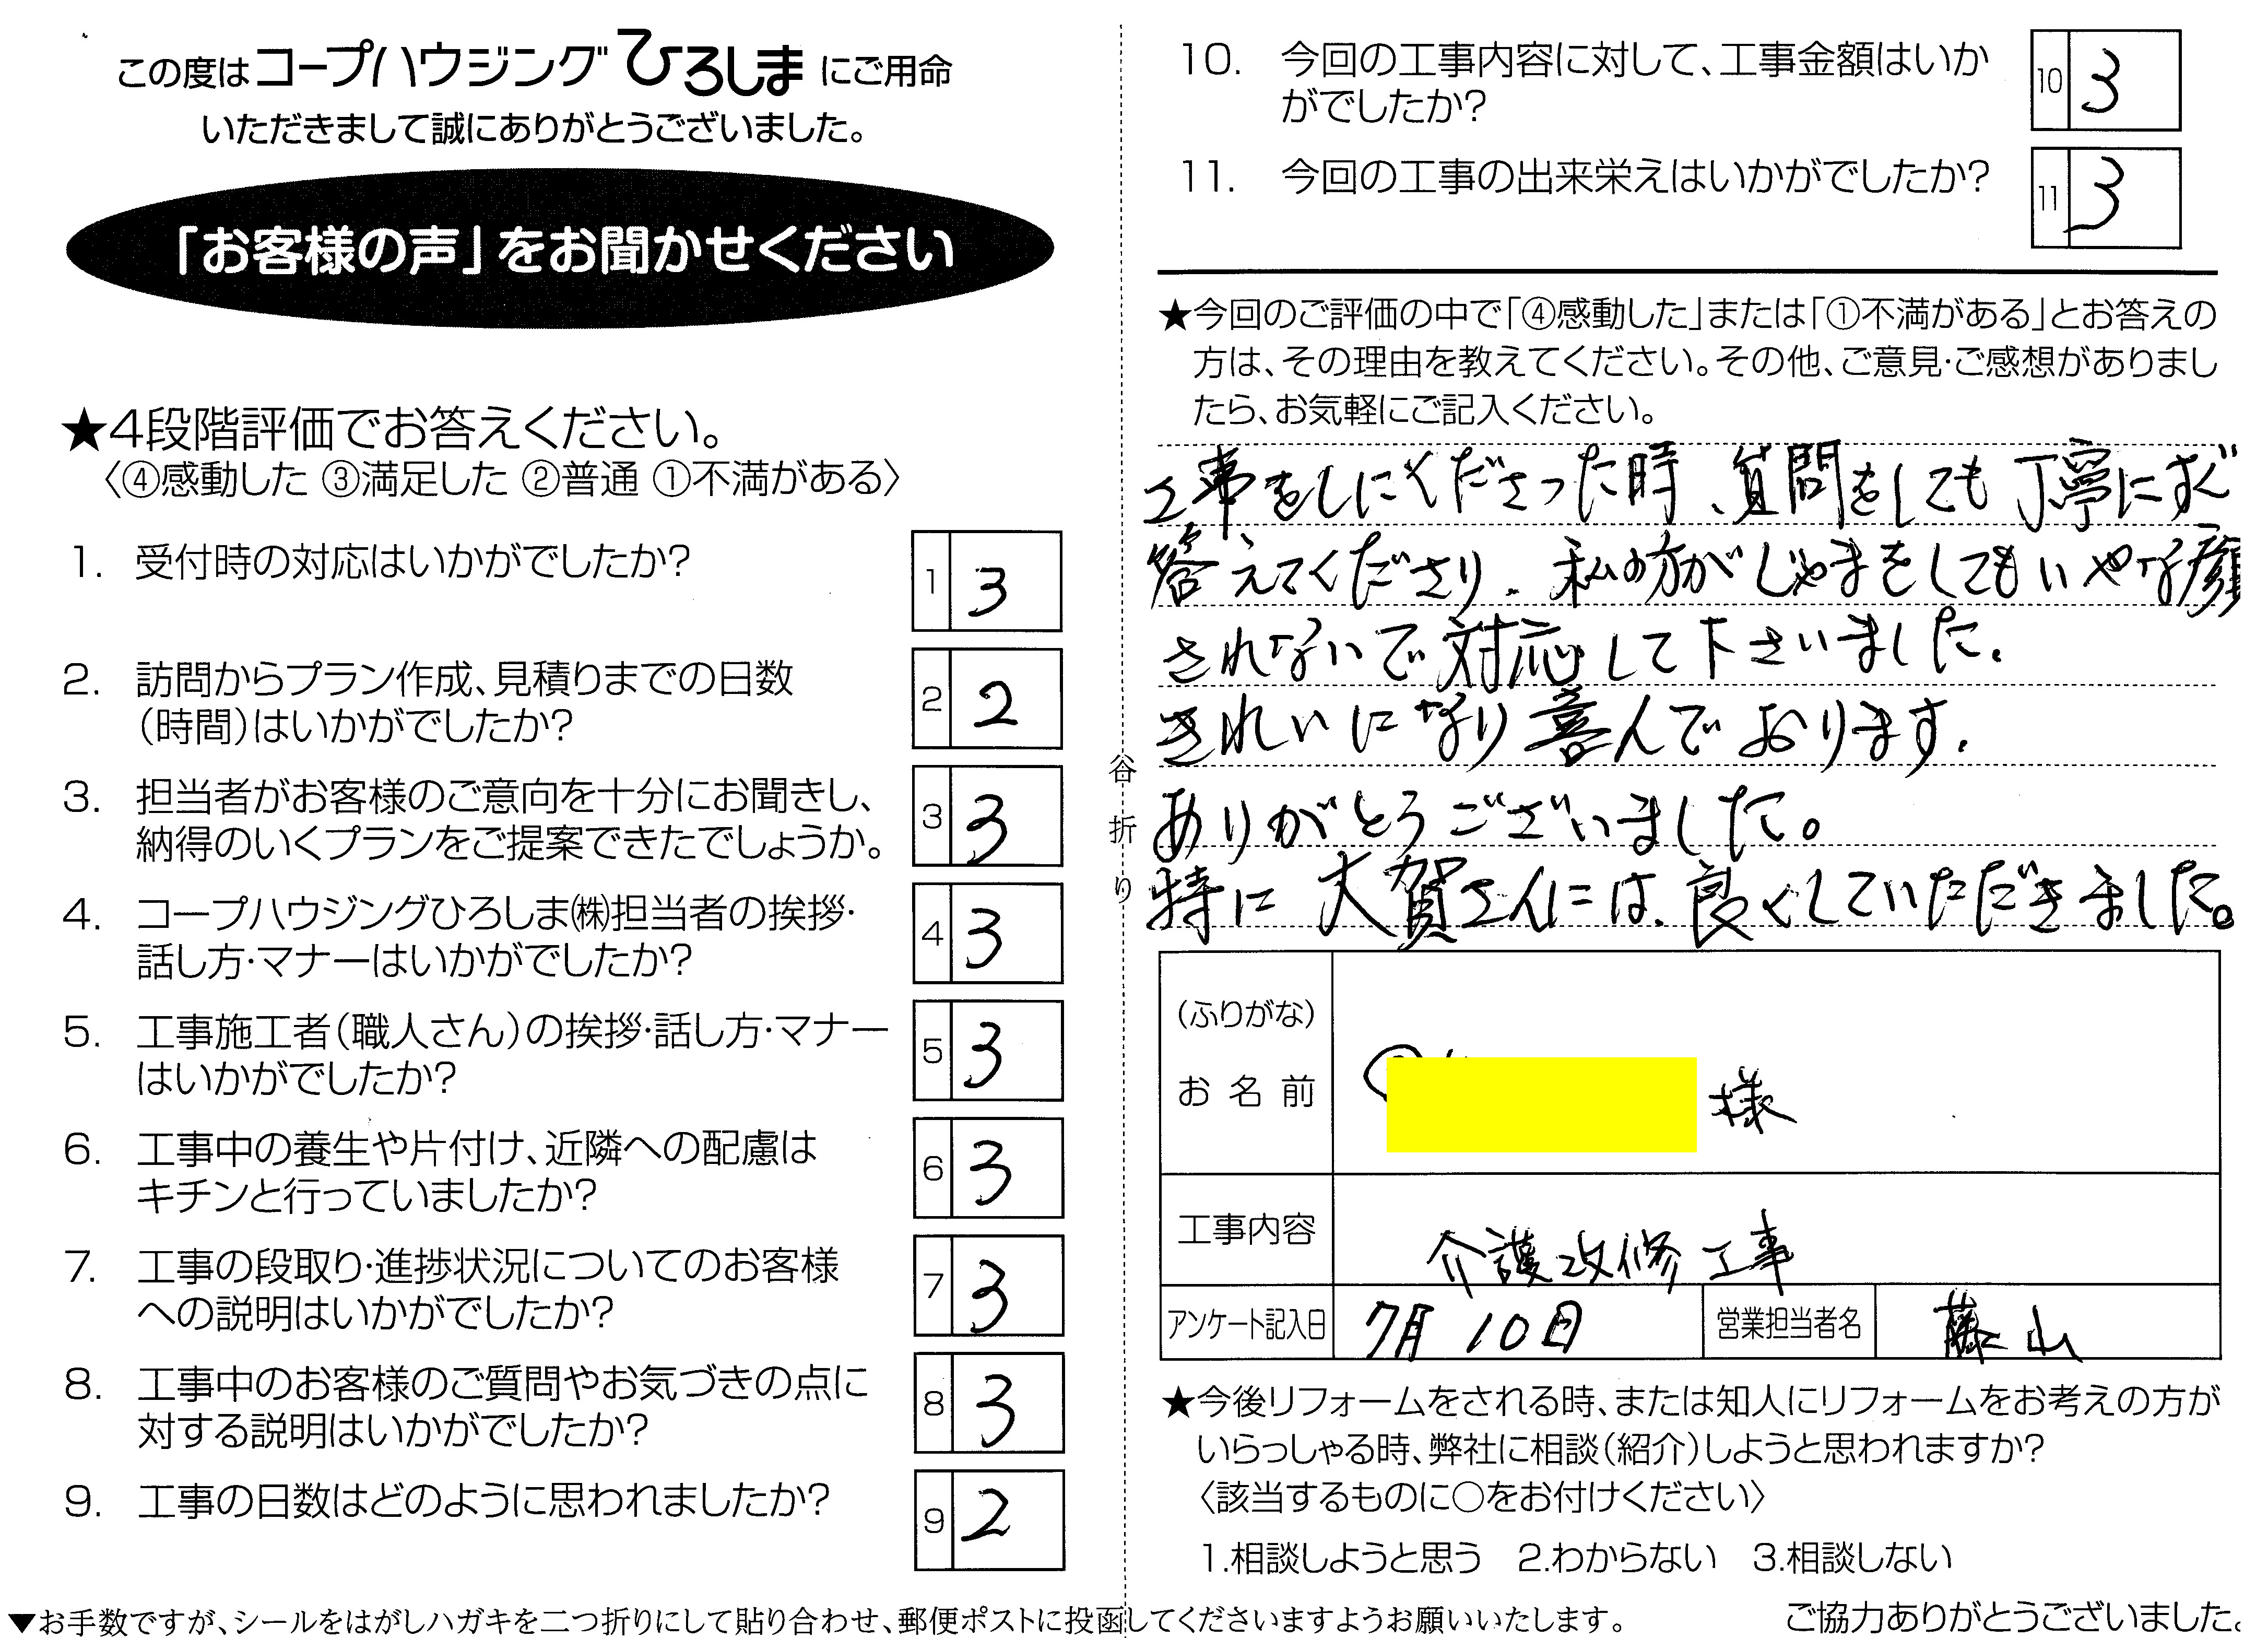 この度はコープハウジングひろしまにご用命
いただきまして誠にありがとうございました。
「お客様の声」をお聞かせください
★4段階評価でお答えください。
〈④感動した ③満足した ②普通 ①不満がある〉
1. 受付時の対応はいかがでしたか? 1 3
2. 訪問からプラン作成、見積りまでの日数
(時間)はいかがでしたか? 2 2
3. 担当者がお客様のご意向を十分にお聞きし、
納得のいくプランをご提案できたでしょうか。 3 3
4. コープハウジングひろしま㈱担当者の挨拶・
話し方・マナーはいかがでしたか? 4 3
5. 工事施工者(職人さん)の挨拶・話し方・マナー
はいかがでしたか? 5 3
6. 工事中の養生や片付け、近隣への配慮は
キチンと行っていましたか? 6 3
7. 工事の段取り・進捗状況についてのお客様
への説明はいかがでしたか? 7 3
8. 工事中のお客様のご質問やお気づきの点に
対する説明はいかがでしたか? 8 3
9. 工事の日数はどのように思われましたか? 9 2
谷折り
10. 今回の工事内容に対して、工事金額はいか
がでしたか? 10 3
11. 今回の工事の出来栄えはいかがでしたか? 11 3
★今回のご評価の中で「④感動した」または「①不満がある」とお答えの
方は、その理由を教えてください。その他、ご意見・ご感想がありまし
たら、お気軽にご記入ください。
工事をしにくださった時、質問をしても丁寧にすぐ
答えてくださり、私の方がじゃまをしてもいやな顔
されないで対応して下さいました。
きれいになり喜んでおります。
ありがとうございました。
特に大賀さんには、良くしていただきました。
(ふりがな)
お名前 様
工事内容 介護改修工事
アンケート記入日 7月10日 営業担当者名 藤山
★今後リフォームをされる時、または知人にリフォームをお考えの方が
いらっしゃる時、弊社に相談(紹介)しようと思われますか?
〈該当するものに○をお付けください〉
1.相談しようと思う 2.わからない 3.相談しない
▼お手数ですが、シールをはがしハガキを二つ折りにして貼り合わせ、郵便ポストに投函してくださいますようお願いいたします。 ご協力ありがとうございました。